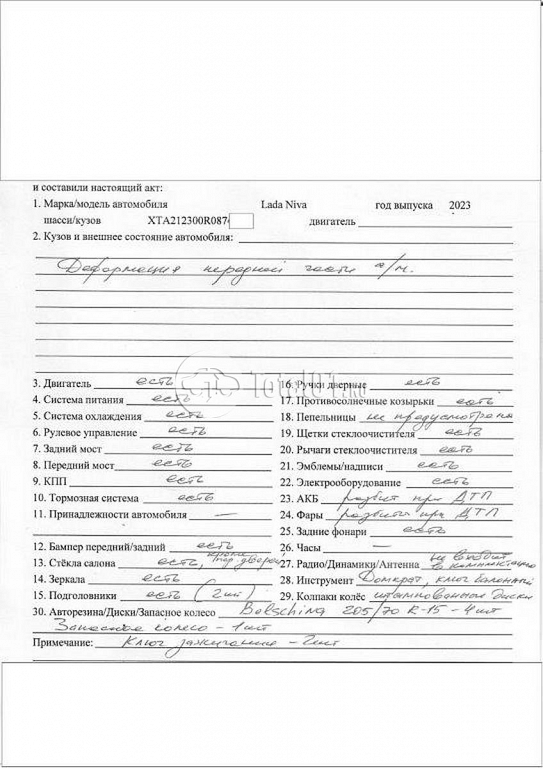 и составили настоящий акт:
1. Марка/модель автомобиля Lada Niva год выпуска 2023
шасси/кузов ХТА212300R087 двигатель
2. Кузов и внешнее состояние автомобиля:
Деформация передней части а/м.
Total01.ru
3. Двигатель есть 16. Ручки дверные есть
4. Система питания есть 17. Противосолнечные козырьки есть
5. Система охлаждения есть 18. Пепельницы не предусмотрена
6. Рулевое управление есть 19. Щетки стеклоочистителя есть
7. Задний мост есть 20. Рычаги стеклоочистителя есть
8. Передний мост есть 21. Эмблемы/надписи есть
9. КПП есть 22. Электрооборудование есть
10. Тормозная система есть 23. АКБ разбит при ДТП
11. Принадлежности автомобиля — 24. Фары разбиты при ДТП
25. Задние фонари есть
12. Бампер передний/задний есть 26. Часы —
13. Стёкла салона есть, кроме пер. двери 27. Радио/Динамики/Антенна не входит в комплектацию
14. Зеркала есть 28. Инструмент Домкрат, ключ балонный
15. Подголовники есть (2шт) 29. Колпаки колёс штампованные диски
30. Авторезина/Диски/Запасное колесо Belschina 205/70 R-15 - 4шт
Запасное колесо - 1шт
Примечание: Ключ зажигания - 2шт